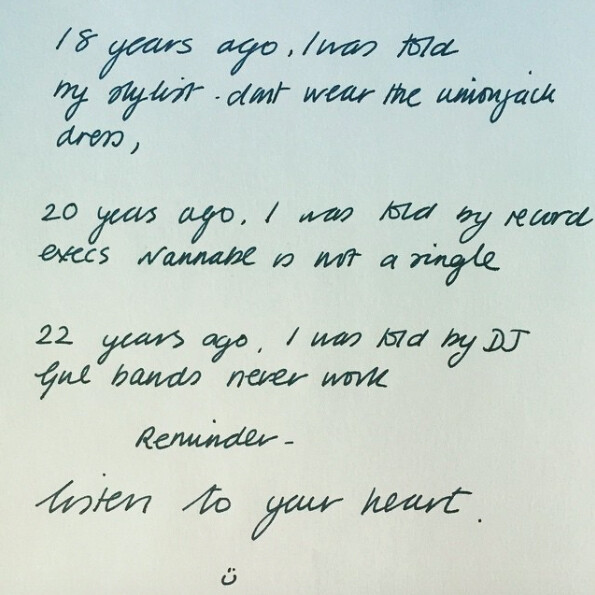 18 years ago, I was told
my stylist. dont wear the unionjack
dress,
20 years ago, I was told by record
execs Wannabe is not a single
22 years ago, I was told by DJ
Girl bands never work
Reminder -
listen to your heart.